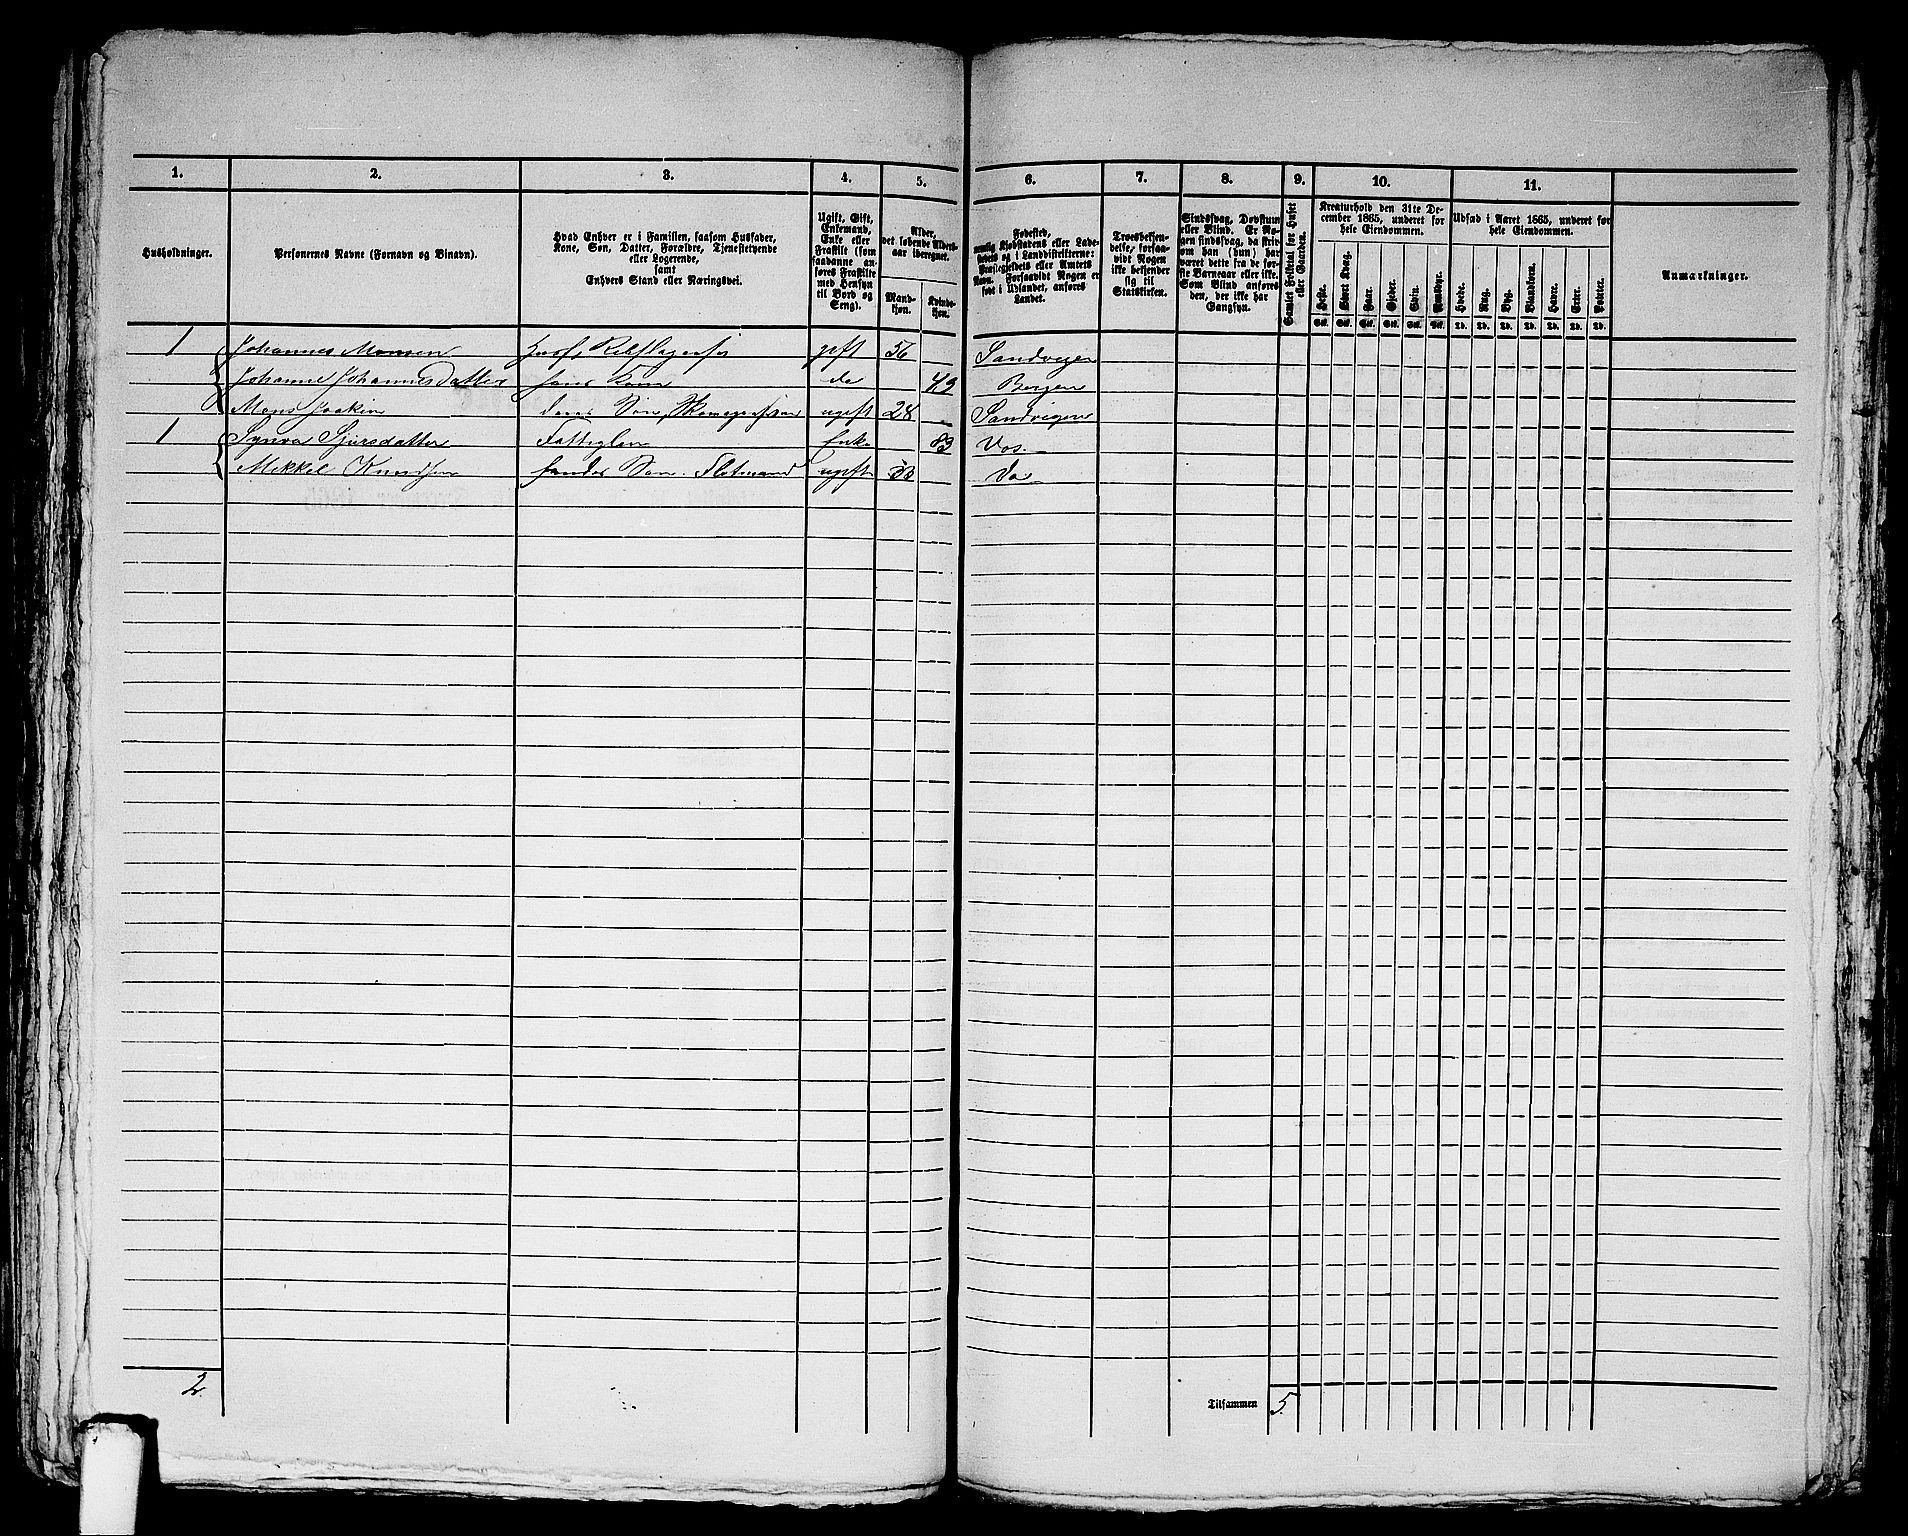 1. 2. 3. 4. 5. 6. 7. 8. 9. 10. 11.
Husholdninger.
Personernes Navne (Fornavn og Binavn).
Hvad Enhver er i Familien, saasom Husfader,
Kone, Søn, Datter, Forældre, Tjenestetyende
eller Logerende,
samt
Enhvers Stand eller Næringsvei.
Ugift, Gift,
Enkemand,
Enke eller
Fraskilt (som
saadanne an-
føres Fraskilte
med Hensyn
til Bord og
Seng).
Alder,
det løbende Alders-
aar iberegnet.
Mand-
kjøn.
Kvinde-
kjøn.
Fødested,
nemlig Kjøbstadens eller Lade-
stedets og i Landdistrikterne:
Præstegjeldets eller Amtets
Navn. Forsaavidt Nogen er
født i Udlandet, anføres
Landet.
Troesbekjen-
delse, forsaa-
vidt Nogen
ikke bekjender
sig til
Statskirken.
Sindssvag, Døvstum
eller Blind. Er No-
gen sindssvag, da skriv
om han (hun) har
været dette fra de før-
ste Barneaar eller ikke.
Som Blind anføres
den, der ikke har
Gangsyn.
Samlet Folketal for Huset
eller Gaarden.
Kreaturhold den 31te De-
cember 1865, underet for
hele Eiendommen.
Heste. Stort Kvæg. Faar. Gjeder. Svin. Rensdyr.
Stk. Stk. Stk. Stk. Stk. Stk.
Udsæd i Aaret 1865, underet for
hele Eiendommen.
Hvede. Rug. Byg. Blandkorn. Havre. Erter. Poteter.
Td. Td. Td. Td. Td. Td. Td.
Anmærkninger.
1 Johannes Monsen Husf, Rebslagersv gift 56 Sandvigen
Johanne Johannesdatter hans Kone do 49 Bergen
Mons Joakim deres Søn, ugift 28 Sandvigen
1 Synva Sjursdatter Fattiglem Enke 83 Vos.
Mikkel Knudsen hendes Søn. Flotmand ugift 33 Do
2
Tilsammen 5.